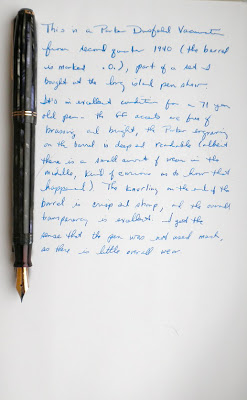 This is a Parker Duofold Vacumatic
from second quarter 1940 (the barrel
is marked .0.), part of a set I
bought at the long island pen show.
It's in excellent condition for a 71 year
old pen. the GF accents are free of
brassing and bright, the Parker engraving
on the barrel is deep and readable (albeit
there is a small amount of wear in the
middle, kind of curious as to how that
happened.) The knurling on the end of the
barrel is crisp and sharp, and the overall
transparency is excellent. I get the
sense that the pen was not used much,
as there is little overall wear.